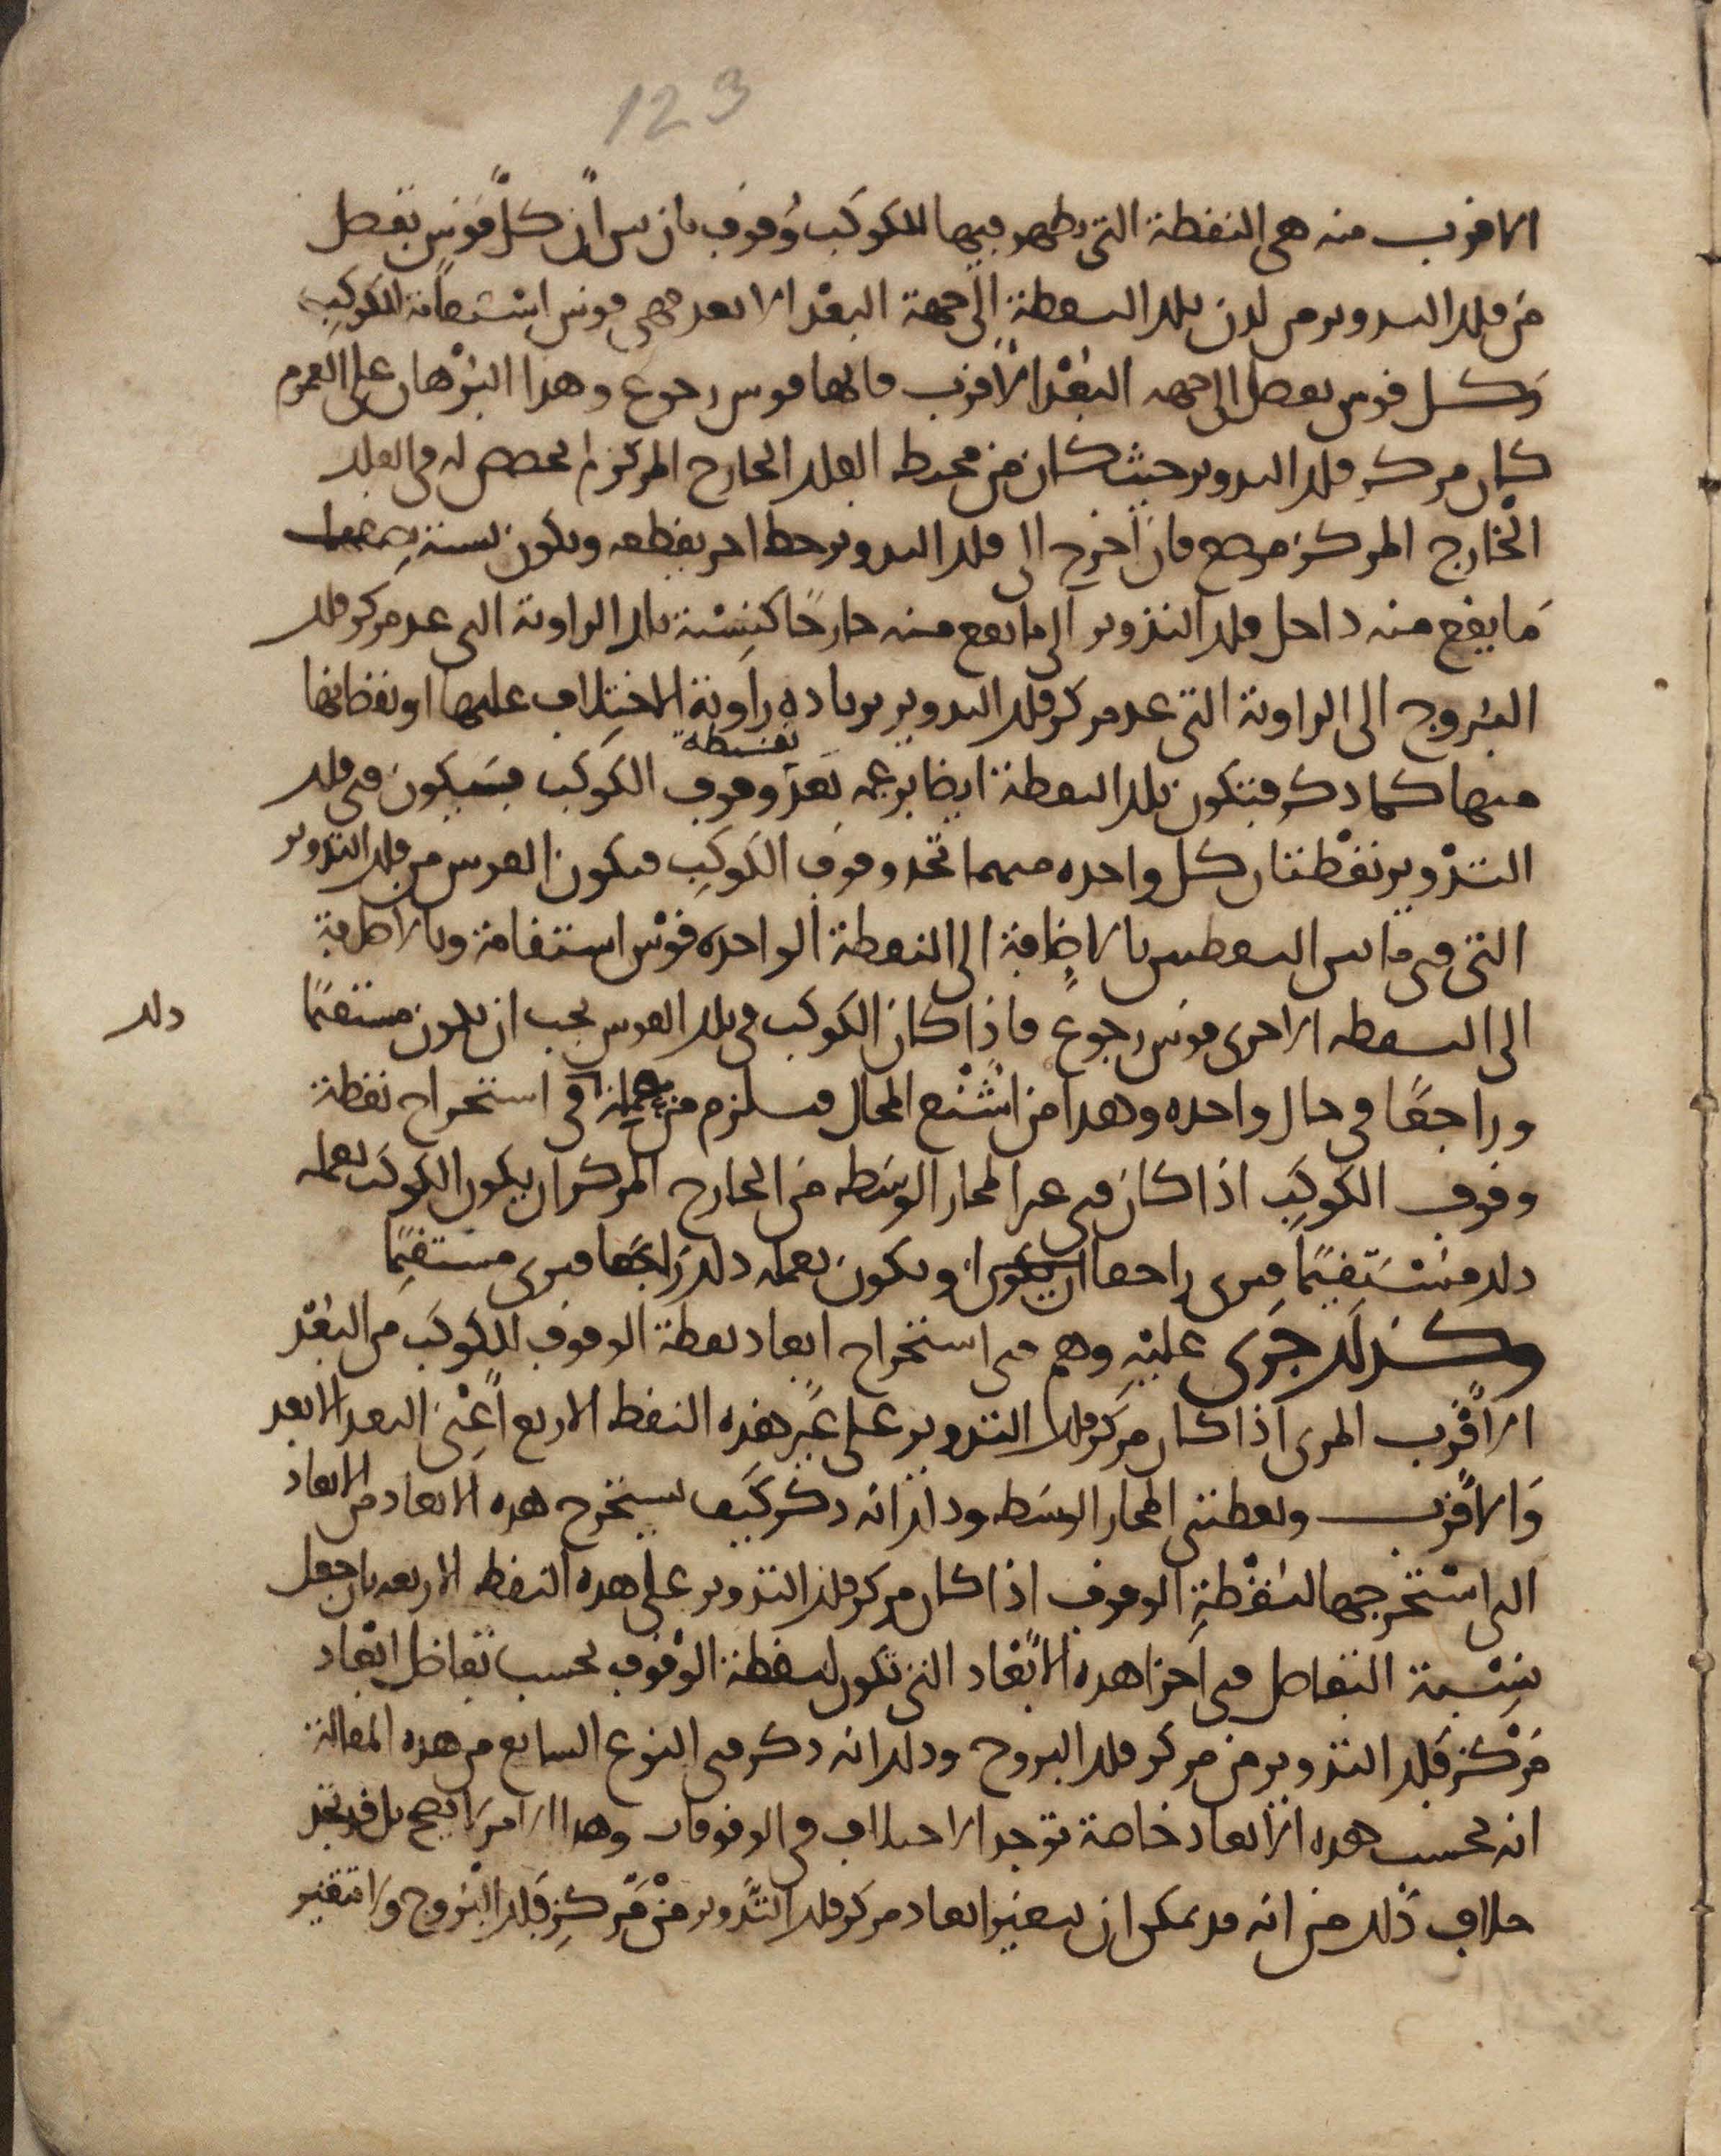 123
الاقرب منه هي النقطة التي يظهر فيها للكوكب وُقوف بان بين ان كلّ قوس تفصل
من فلك التدوير من لدن تلك النقطة الى جهة البعْد الابعد فهي قوس استقامة الكوكب
وكل قوس تفصل الى جهة البعْد الاقرب فانها قوس رجوع وهذا البرْهان على العموم
كان مركز فلك التدوير حيث كان من محيط الفلك الخارج المركز لم يخصص له في الفلك
الخارج المركز موضع فان اخرج الى فلك التدوير خط اخر يقطعه وتكون نسبة نصف
ما يقع منه داخل فلك التدوير الى ما يقع منه خارجًا كنسْبة تلك الزاوية التي عند مركز فلك
البروج الى الزاوية التي عند مركز فلك التدوير بزيادة زاوية الاختلاف عليها او نقصانها
منها كما ذكر فتكون تلك النقطة ايضا بزعمه نقطة وقوف الكوكب فسيكون في فلك
التدْوير نقْطتان كل واحده منهما تحد وقوف الكوكب فتكون القوس من فلك التدوير
التي في ما بين النقطتين بالاضافة الى النقطة الواحده قوْس استقامة وبالاضافة
الى النقطه الاخرى قوس رجوع فاذا كان الكوكب في تلك القوس يجب ان يكون مستقيمًا
ذلك
وراجعًا في حال واحده وهذا من اشْنع المحال فيلزم من عمله في استخراج نقطة
وقوف الكوكب اذا كان في غير المجاز الوسَطه من الخارج المركز ان يكون الكوكب بعمله
ذلك مسْتقيمًا فيرى راجعا او يكون بعمله ذلك راجعًا فيرى مستقيمًا
وكذلك جَرى عليْه وهم في استخراج ابعاد نقطة الوقوف للكوكب من البعْد
الاقرب المرى اذا كان مركز فلك التدوير على غير هذه النقط الاربع اعْني البعد الابعد
والاقرب ونقطتي المجاز الوسَطه وذلك انه ذكر كيف يستخرج هذه الابعاد من الابعاد
التي استخرجها لنقْطة الوقوف اذا كان مركز فلك التدوير على هذه النقط الاربعه بان جعل
نسْبة التفاضل في اجزا هذه الابْعاد التي تكون لنقطة الوقوف بحسب تفاضل ابْعاد
مرْكز فلك التدوير من مركز فلك البروج وذلك انه ذكر في النوع السابع من هذه المقالة
انه بحسب هذه الابعاد خاصة توجد الاختلاف في الوقوفات وهذا الامر لا يصح بل قد نجد
خلاف ذلك من انه قد يمكن ان تتغير ابعاد مركز فلك التدوير منْ مركز فلك البروج ولا تتغير